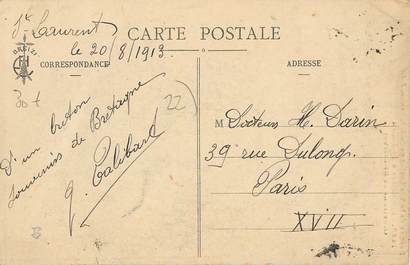 St Laurent
le 20/8/1913
CARTE POSTALE
BREIZ
CORRESPONDANCE
ADRESSE
30 t
22
D'un breton
souvenir de Bretagne
G. Talibart
M Docteur H. Darin
39 rue Dulong
Paris
XVII